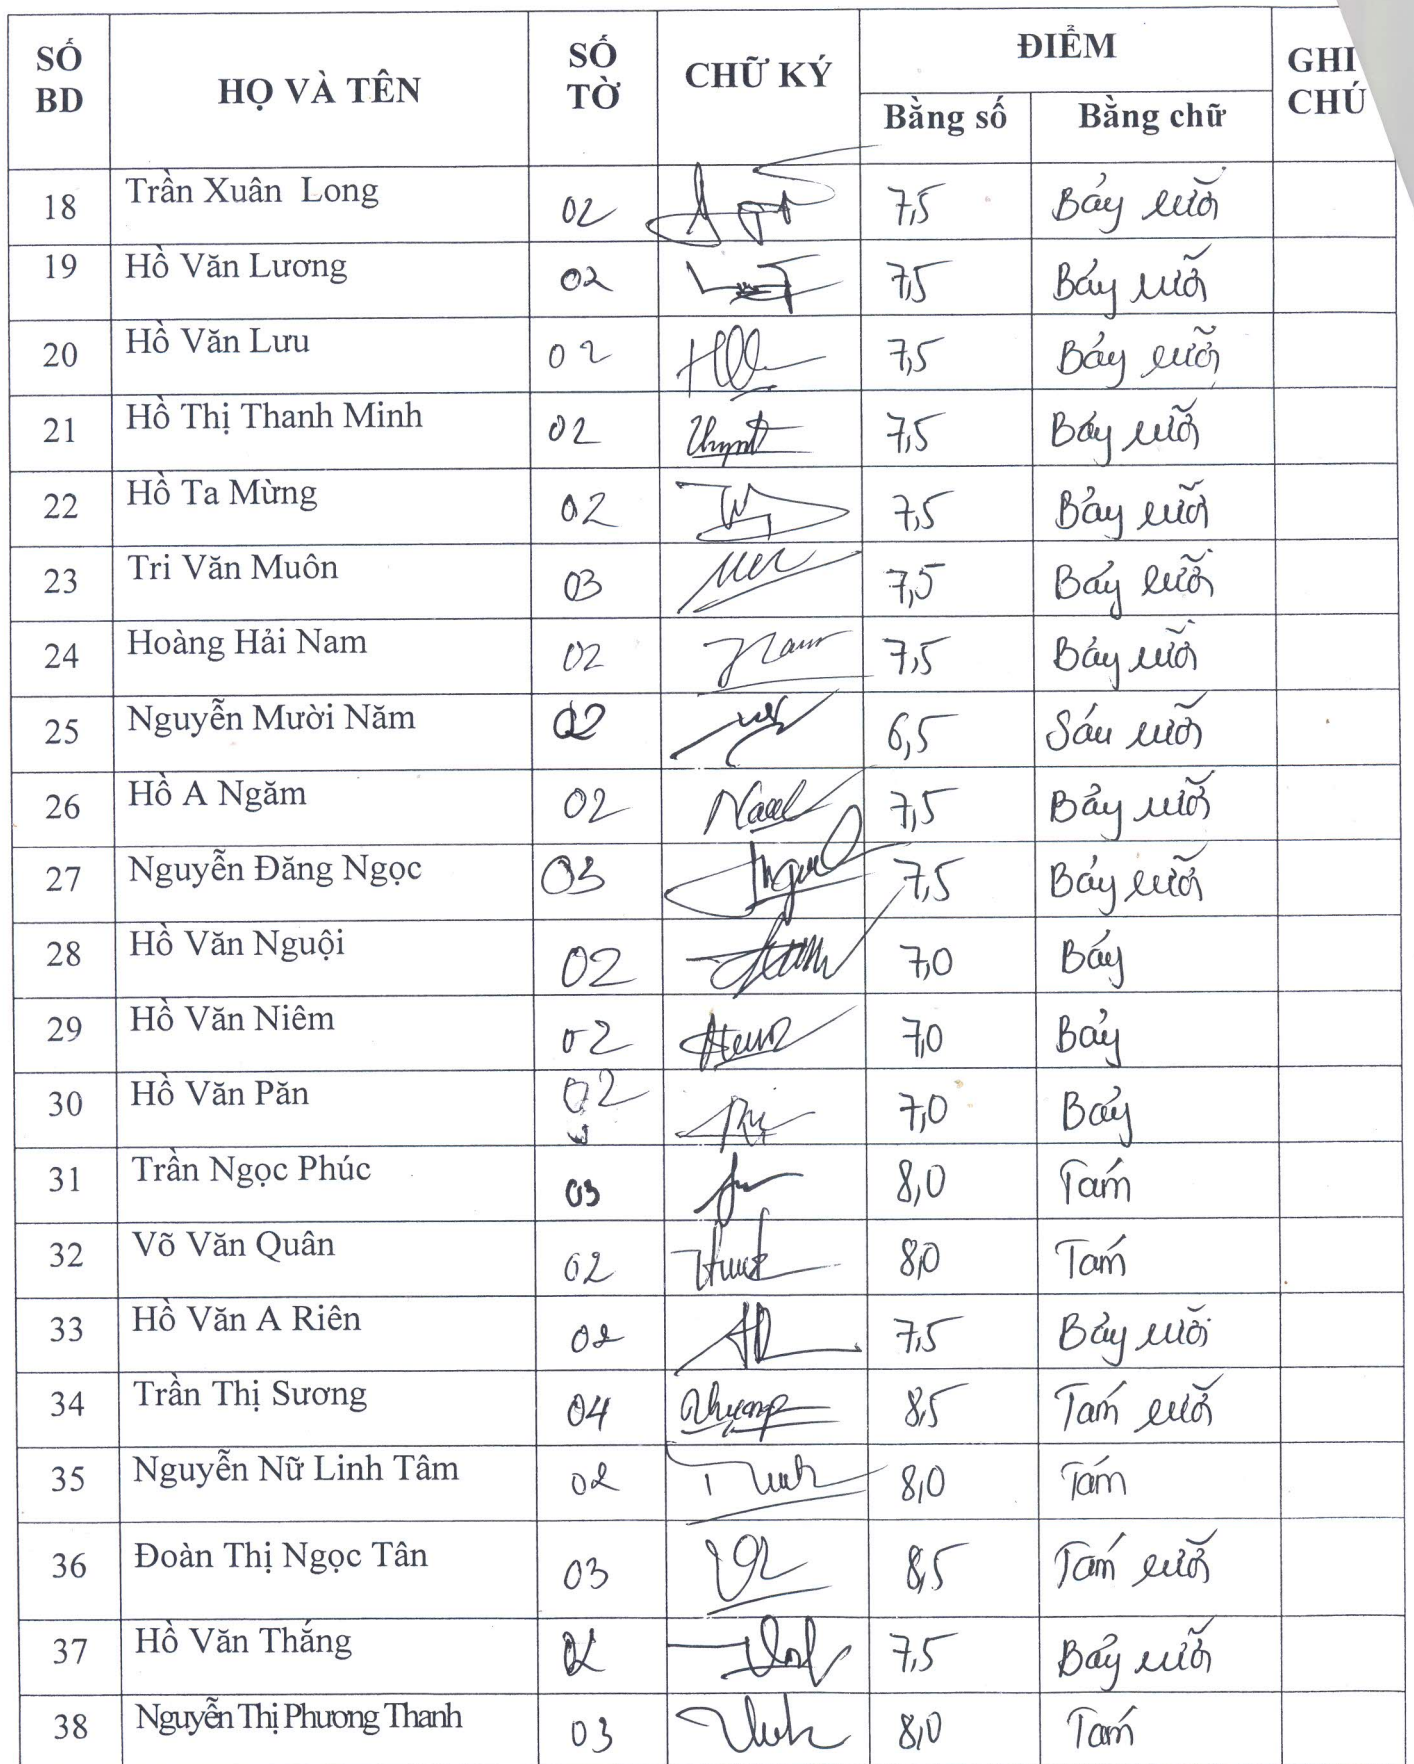 SỐ BD HỌ VÀ TÊN SỐ TỜ CHỮ KÝ ĐIỂM GHI CHÚ
Bằng số Bằng chữ
18 Trần Xuân Long 02 7,5 Bảy rưỡi
19 Hồ Văn Lương 02 7,5 Bảy rưỡi
20 Hồ Văn Lưu 02 7,5 Bảy rưỡi
21 Hồ Thị Thanh Minh 02 7,5 Bảy rưỡi
22 Hồ Ta Mừng 02 7,5 Bảy rưỡi
23 Tri Văn Muôn 03 7,5 Bảy rưỡi
24 Hoàng Hải Nam 02 7,5 Bảy rưỡi
25 Nguyễn Mười Năm 02 6,5 Sáu rưỡi
26 Hồ A Ngăm 02 7,5 Bảy rưỡi
27 Nguyễn Đăng Ngọc 03 7,5 Bảy rưỡi
28 Hồ Văn Nguội 02 7,0 Bảy
29 Hồ Văn Niêm 02 7,0 Bảy
30 Hồ Văn Păn 02 7,0 Bảy
31 Trần Ngọc Phúc 03 8,0 Tám
32 Võ Văn Quân 02 8,0 Tám
33 Hồ Văn A Riên 02 7,5 Bảy rưỡi
34 Trần Thị Sương 04 8,5 Tám rưỡi
35 Nguyễn Nữ Linh Tâm 02 8,0 Tám
36 Đoàn Thị Ngọc Tân 03 8,5 Tám rưỡi
37 Hồ Văn Thắng 02 7,5 Bảy rưỡi
38 Nguyễn Thị Phương Thanh 03 8,0 Tám